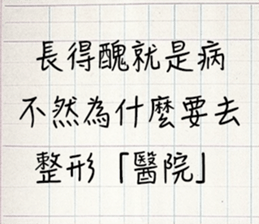 長得醜就是病
不然為什麼要去
整形「醫院」